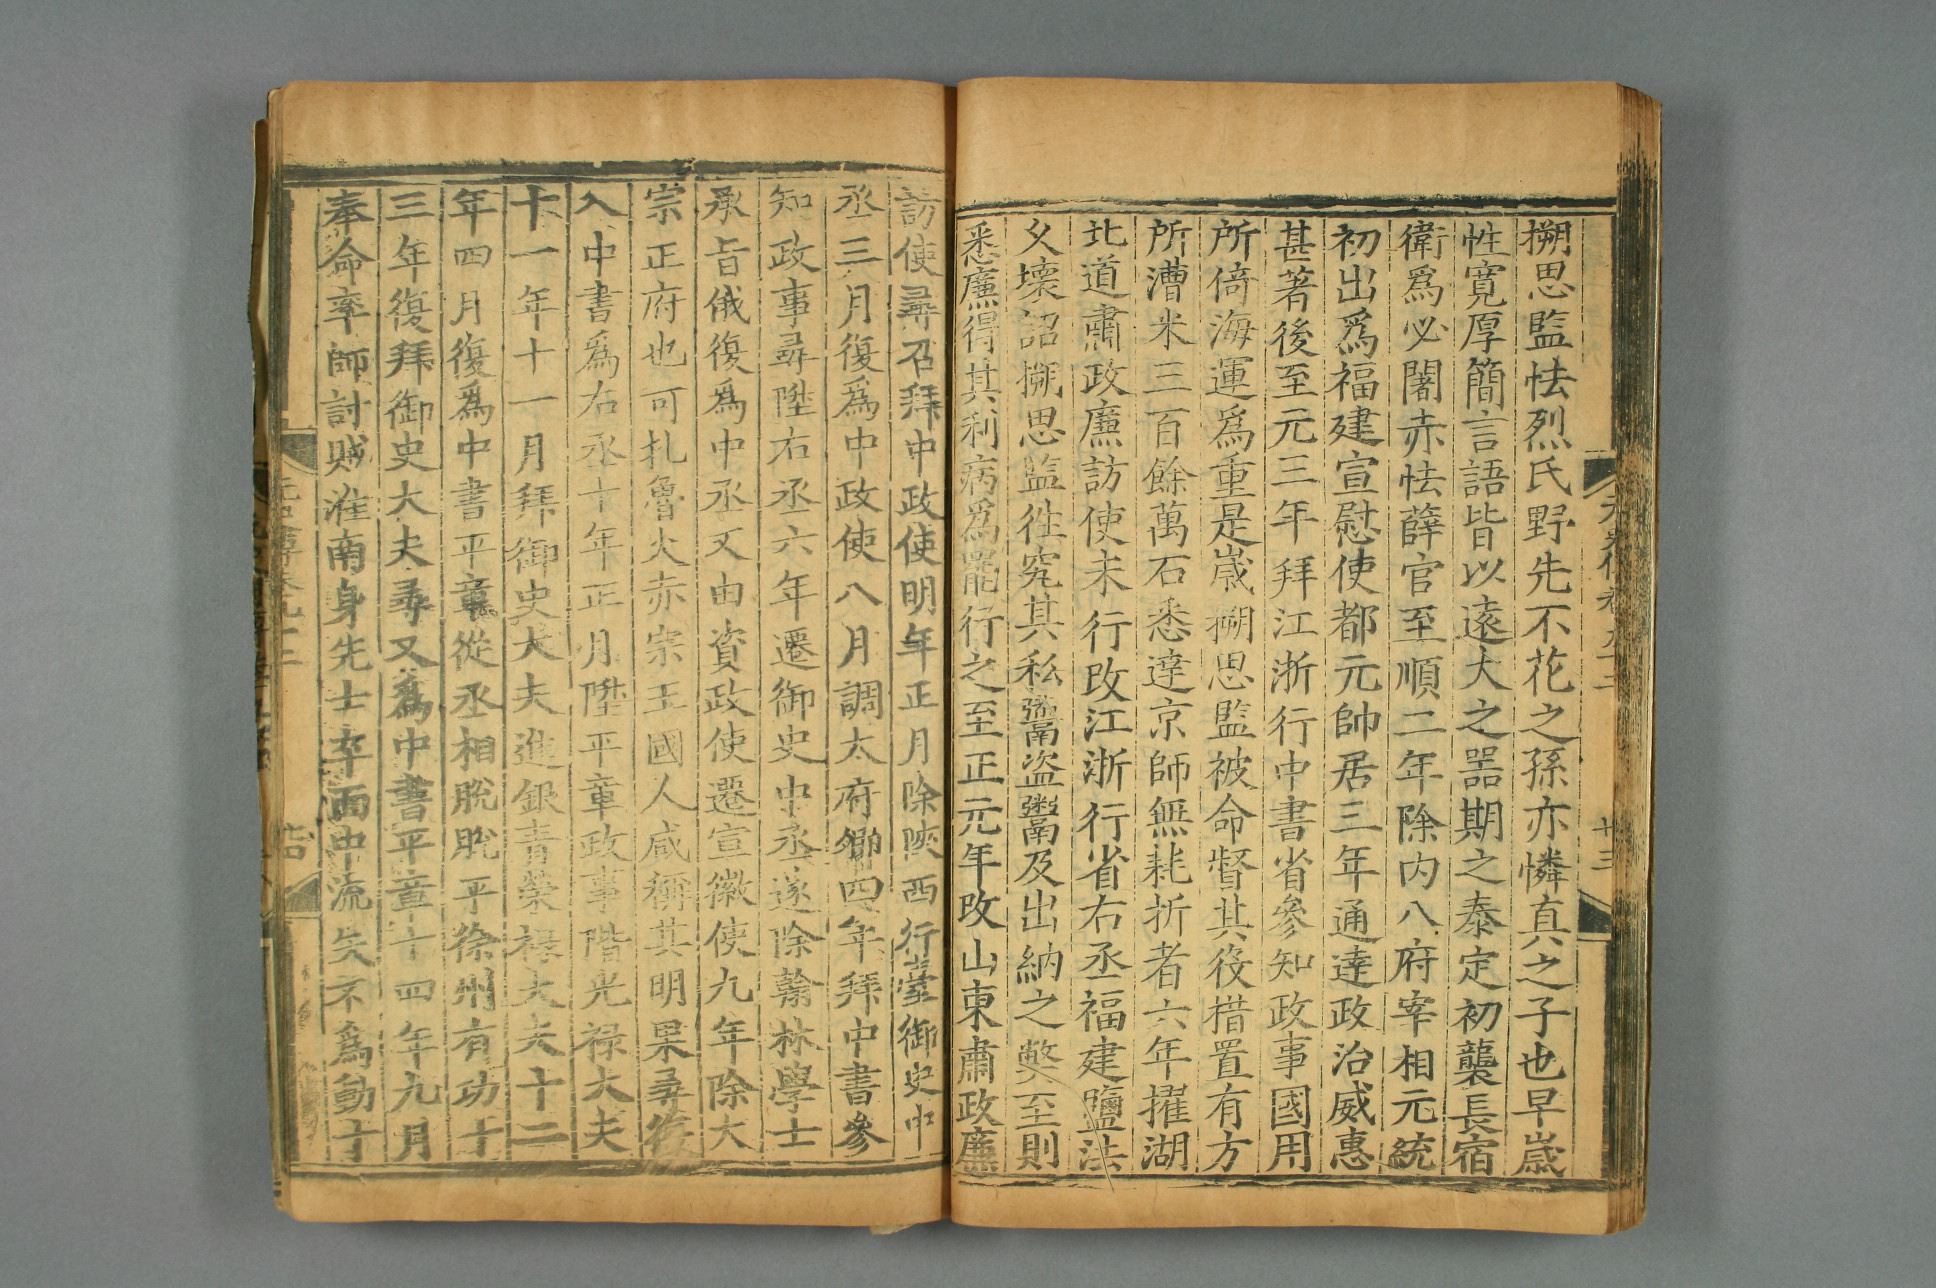 搠思監怯烈氏野先不花之孫亦憐真之子也早歲
性寬厚簡言語皆以遠大之器期之泰定初襲長宿
衛爲必闍赤怯薛官至順二年除内八府宰相元統
初出爲福建宣慰使都元帥居三年通達政治威惠
甚著後至元三年拜江浙行中書省參知政事國用
所倚海運爲重是歲搠思監被命督其役措置有方
所漕米三百餘萬石悉達京師無耗折者六年擢湖
北道肅政廉訪使未行改江浙行省右丞福建鹽法
乆壞詔搠思監徃究其私鬻盗鬻及出納之獘至則
悉廉得其利病爲罷行之至正元年改山東肅政廉
訪使尋召拜中政使明年正月除陜西行臺御史中
丞三月復爲中政使八月調太府卿四年拜中書參
知政事尋陞右丞六年遷御史中丞遂除翰林學士
承旨俄復爲中丞又由資政使遷宣徽使九年除大
宗正府也可扎魯火赤宗王國人咸稱其明果尋復
入中書爲右丞十年正月陞平章政事階光禄大夫
十一年十一月拜御史大夫進銀青榮禄大夫十二
年四月復爲中書平章從丞相脫脫平徐州有功十
三年復拜御史大夫尋又爲中書平章十四年九月
奉命率師討賊淮南身先士卒面中流矢不爲動十